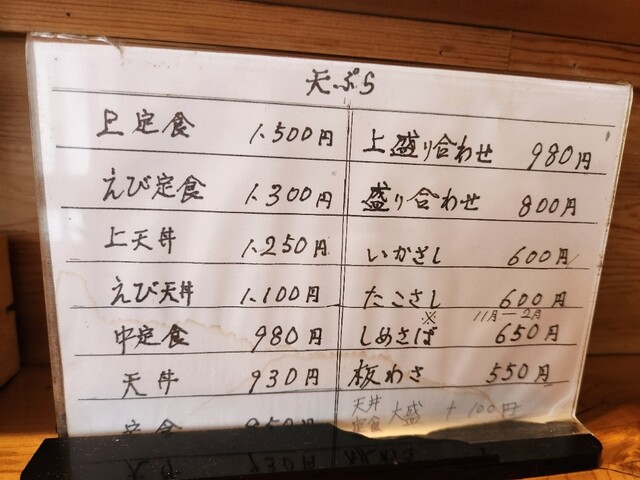 天ぷら
上定食 1.500円
えび定食 1.300円
上天丼 1.250円
えび天丼 1.100円
中定食 980円
天丼 930円
定食 850円
上盛り合わせ 980円
盛り合わせ 800円
いかさし 600円
たこさし 600円
※ 11月ー2月
しめさば 650円
板わさ 550円
天丼 定食 大盛 +100円